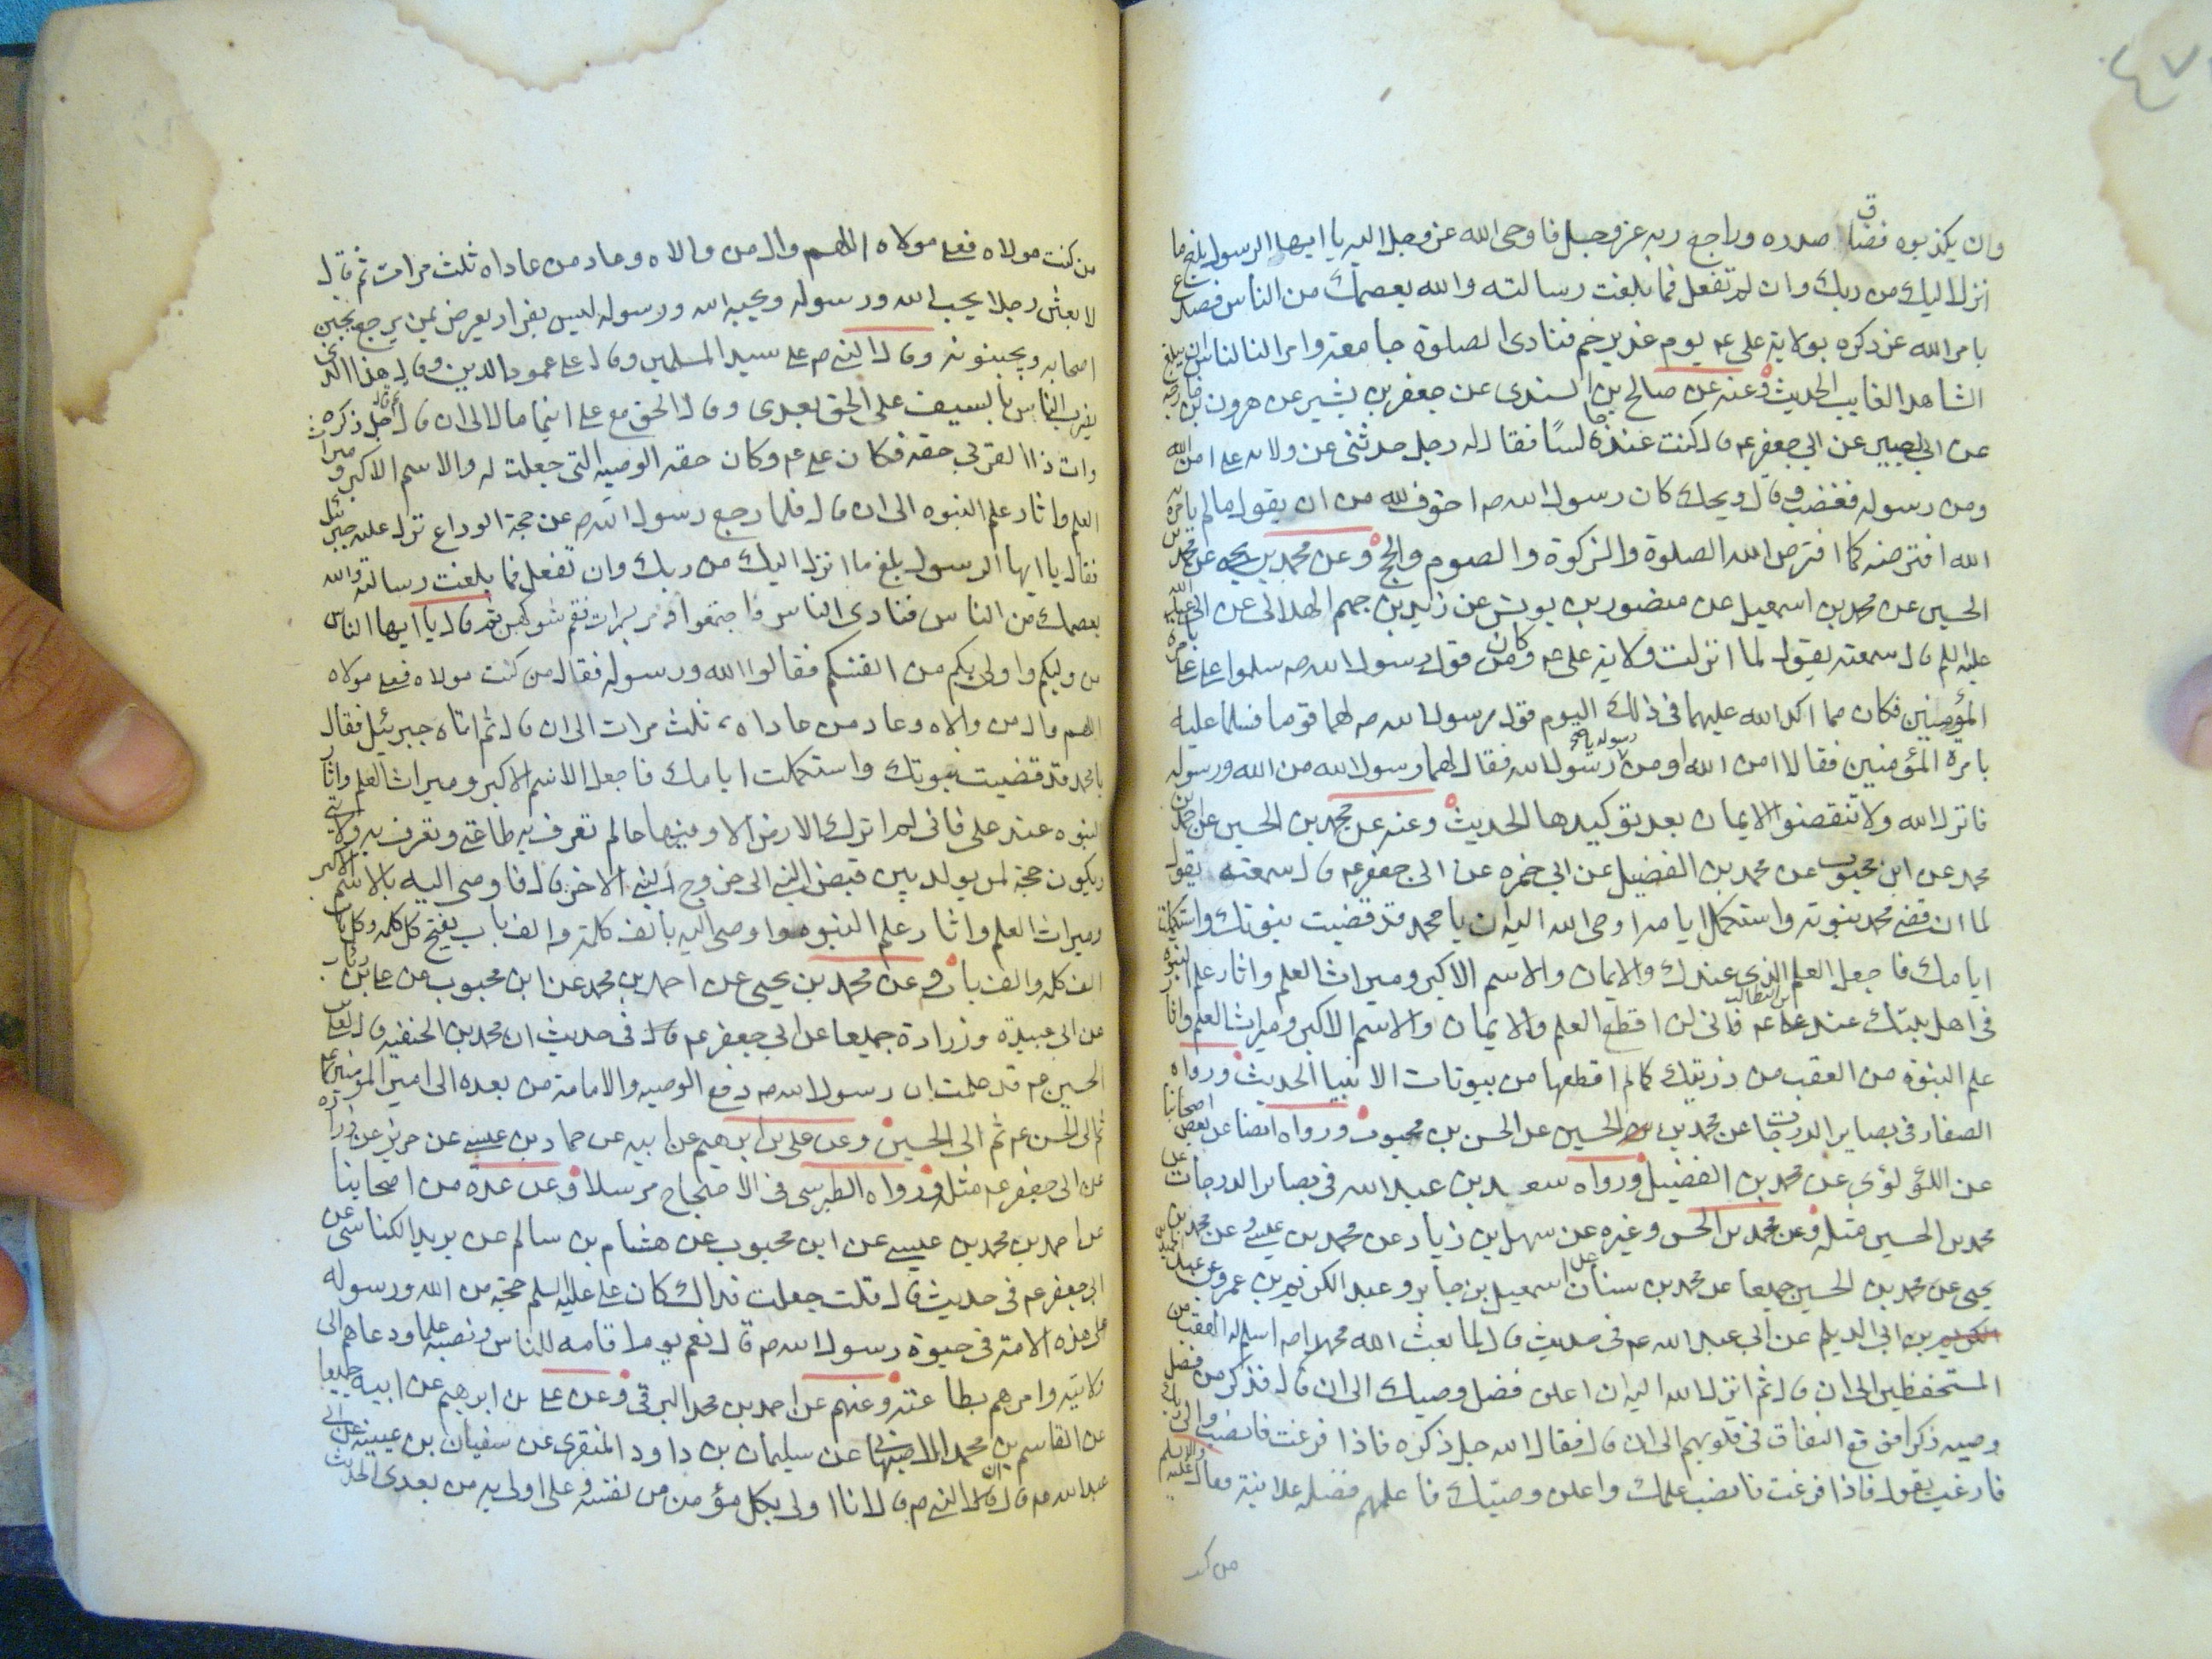 وان يكذبوه فضاق صدره وراجع ربه عز وجل فاوحى الله عز وجل اليه يا ايها الرسول بلغ ما
انزل اليك من ربك وان لم تفعل فما بلغت رسالته والله يعصمك من الناس فصدع
بامر الله عز ذكره بولاية على عم يوم غدير خم فنادى الصلوة جامعة وامر الناس ان يبلغ
الشاهد الغايب الحديث وعنه عن صالح بن السندى عن جعفر بن بشير عن هرون بن خارجه
عن ابى بصير عن ابى جعفر عم قال كنت عنده جالسًا فقال له رجل حدثنى عن ولاية على امن الله
ومن رسوله فغضب و قال ويحك كان رسول الله ص اخوف لله من ان يقول ما لم يامره به
الله افترضه كما افترض الله الصلوة والزكوة والصوم والحج وعن محمد بن يحيى عن محمد بن
الحسين عن محمد بن اسمعيل عن منصور بن يونس عن زيد بن جهم الهلالى عن ابى عبد الله
عليه السلم قال سمعته يقول لما انزلت ولاية على عم وكان من قول رسول الله ص سلموا على على بامرة
المؤمنين فكان مما اكد الله عليهما فى ذلك اليوم قول رسول الله ص لهما قوما فسلما عليه
بامرة المؤمنين فقالا امن الله او من رسوله يا رسول الله فقال لهما رسول الله من الله ورسوله
فانزل الله ولا تنقضوا الايمان بعد توكيدها الحديث وعنه عن محمد بن الحسين عن احمد بن
محمد عن ابن محبوب عن محمد بن الفضيل عن ابى حمزه عن ابى جعفر عم قال سمعته يقول
لما ان قضى محمد نبوته واستكمل ايامه اوحى الله اليه ان يا محمد قد قضيت نبوتك واستكملت
ايامك فاجعل العلم الذى عندك والايمان والاسم الاكبر وميراث العلم واثار علم النبوة
فى اهل بيتك عند على بن ابى طالب عم فانى لن اقطع العلم والايمان والاسم الاكبر وميراث العلم واثار
علم النبوة من العقب من ذريتك كما لم اقطعها من بيوتات الانبيا الحديث ورواه
الصفار فى بصاير الدرجات عن محمد بن الحسين عن الحسن بن محبوب ورواه ايضا عن بعض اصحابنا
عن اللؤلؤى عن محمد بن الفضيل ورواه سعد بن عبد الله فى بصاير الدرجات عن
محمد بن الحسين مثله وعن محمد بن الحسن وغيره عن سهل بن زياد عن محمد بن عيسى وعن محمد بن
يحيى عن محمد بن الحسين جميعا عن محمد بن سنان عن اسمعيل بن جابر وعبد الكريم بن عمرو عن عبد الحميد
بن ابى الديلم عن ابى عبد الله عم فى حديث قال لما بعث الله محمدا ص اسلم له العقب من
المستحفظين الى ان قال ثم انزل الله اليه ان اعلن فضل وصيك الى ان قال فذكر من فضل
وصيه ذكرا فوقع النفاق فى قلوبهم الى ان قال فقال الله جل ذكره فاذا فرغت فانصب والى ربك
فارغب يقول فاذا فرغت فانصب علمك واعلن وصيك فاعلمهم فضله علانية فقال عليه والاسلم
من كنت مولاه فعلى مولاه اللهم وال من والاه وعاد من عاداه ثلث مرات ثم قال
لابعثن رجلا يحب الله ورسوله ويحبه الله ورسوله ليس بفرار يعرض بمن يرجع يجبن
اصحابه ويجبنونه وقال النبى ص على سيد المسلمين وقال على عمود الدين وقال هذا الذى
يضرب الناس بالسيف على الحق بعدى وقال الحق مع على اينما مال الى ان قال ثم قال جل ذكره
وات ذا القربى حقه فكان على عم وكان حقه الوصيه التى جعلت له والاسم الاكبر وميراث
العلم واثار علم النبوه الى ان قال فلما رجع رسول الله ص عن حجة الوداع نزل عليه جبرئيل
فقال يا ايها الرسول بلغ ما انزل اليك من ربك وان لم تفعل فما بلغت رسالته والله
يعصمك من الناس فنادى الناس فاجتمعوا وامر بسمرات فقم شوكهن ثم قال يا ايها الناس
من وليكم واولى بكم من انفسكم فقالوا الله ورسوله فقال من كنت مولاه فعلى مولاه
اللهم وال من والاه وعاد من عاداه ثلث مرات الى ان قال ثم اتاه جبرئيل فقال
يا محمد قد قضيت نبوتك واستكملت ايامك فاجعل الاسم الاكبر وميراث العلم واثار
النبوه عند على فانى لم اترك الارض الا وفيها عالم تعرف به طاعتى وتعرف به ولايتى
ويكون حجة لمن يولد بين قبض النبى الى خروج النبى الاخر قال فاوصى اليه بالاسم الاكبر
وميراث العلم واثار علم النبوه واوصى اليه بالف كلمة والف باب يفتح كل كلمه وكل باب
الف كلمه والف باب وعن محمد بن يحيى عن احمد بن محمد عن ابن محبوب عن على بن رئاب
عن ابى عبيدة وزرارة جميعا عن ابى جعفر عم قال فى حديث ان محمد بن الحنفيه قال لعلى بن
الحسين عم قد علمت ان رسول الله ص دفع الوصيه والامامة من بعده الى امير المؤمنين عم
ثم الى الحسن عم ثم الى الحسين وعن على بن ابرهيم عن ابيه عن حماد بن عيسى عن حريز عن زرارة
عن ابى جعفر عم مثله ورواه الطبرسى فى الاحتجاج مرسلا وعن عدة من اصحابنا
عن احمد بن محمد بن عيسى عن ابن محبوب عن هشام بن سالم عن بريد الكناسى عن
ابى جعفر عم فى حديث قال قلت جعلت فداك كان على عليه السلم حجة من الله ورسوله
على هذه الامة فى حيوة رسول الله ص قال نعم يوم اقامه للناس ونصبه علما ودعاهم الى
ولايته وامرهم بطاعته وعنهم عن احمد بن محمد البرقى وعن على بن ابرهيم عن ابيه جميعا
عن القاسم بن محمد الاصبهانى عن سليمان بن داود المنقرى عن سفيان بن عيينه عن ابى
عبد الله عم قال ان النبى ص قال انا اولى بكل مؤمن من نفسه وعلى اولى به من بعدى الحديث